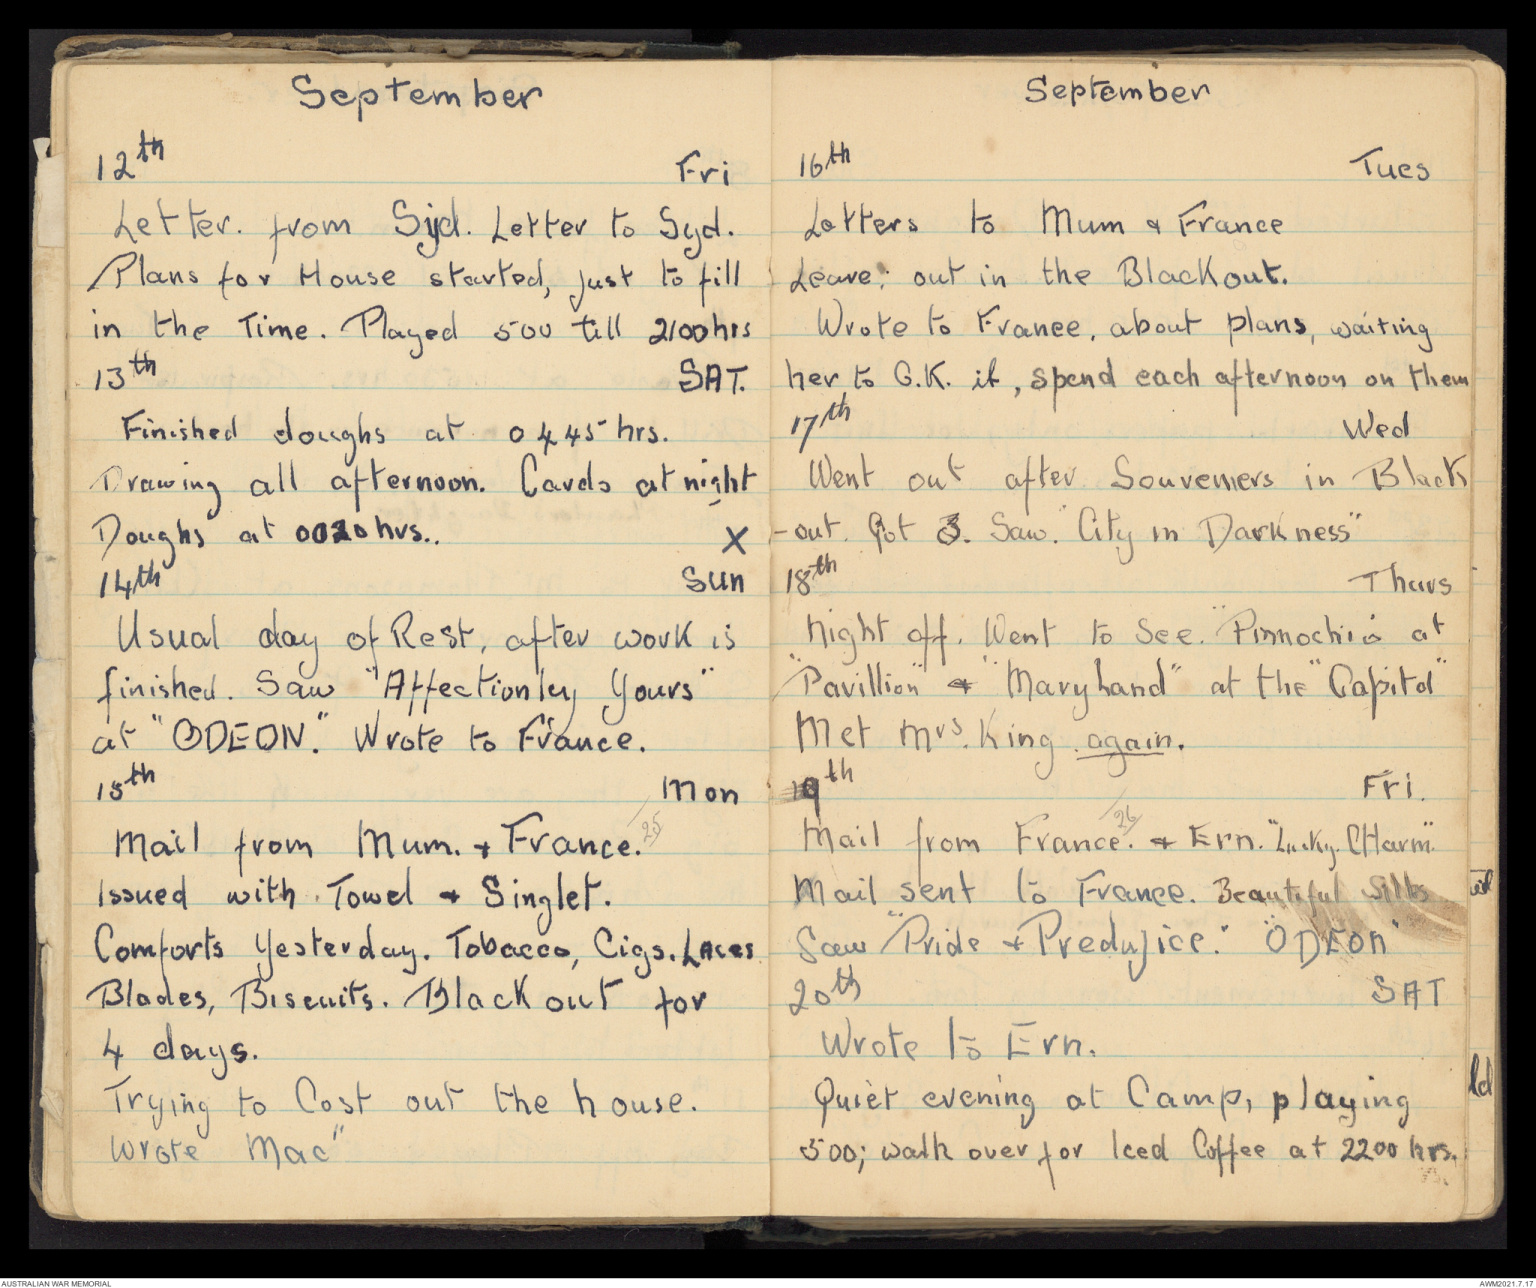 September
12th Fri
Letter. from Syd. Letter to Syd.
Plans for House started, just to fill
in the Time. Played 500 till 2100hrs
13th SAT.
Finished doughs at 0445 hrs.
Drawing all afternoon. Cards at night
Doughs at 0020hrs.. X
14th Sun
Usual day of Rest, after work is
finished. Saw "Affectionley Yours"
at "ODEON." Wrote to France.
15th Mon
Mail from Mum. + France. 25
Issued with Towel + Singlet.
Comforts Yesterday. Tobacco, Cigs. Laces
Blades, Biscuits. Black out for
4 days.
Trying to Cost out the house.
Wrote Mac"
September
16th Tues
Letters to Mum & France
Leave; out in the Blackout.
Wrote to France, about plans, waiting
her to O.K. it, spend each afternoon on them
17th Wed
Went out after Souveniers in Black
-out. Got 3. Saw. "City in Darkness"
18th Thurs
Night off. Went to See. "Pinnochio at
"Pavillion" & "Maryland" at the "Capitol"
Met Mrs. King again.
19th Fri.
Mail from France. 26 + Ern. "Lucky. CHarm."
Mail sent to France. Beautiful Silks
Saw "Pride + Predujice." "ODEON"
20th SAT
Wrote to Ern.
Quiet evening at Camp, playing
500; walk over for Iced Coffee at 2200 hrs.
ld
AUSTRALIAN WAR MEMORIAL
AWM2021.7.17